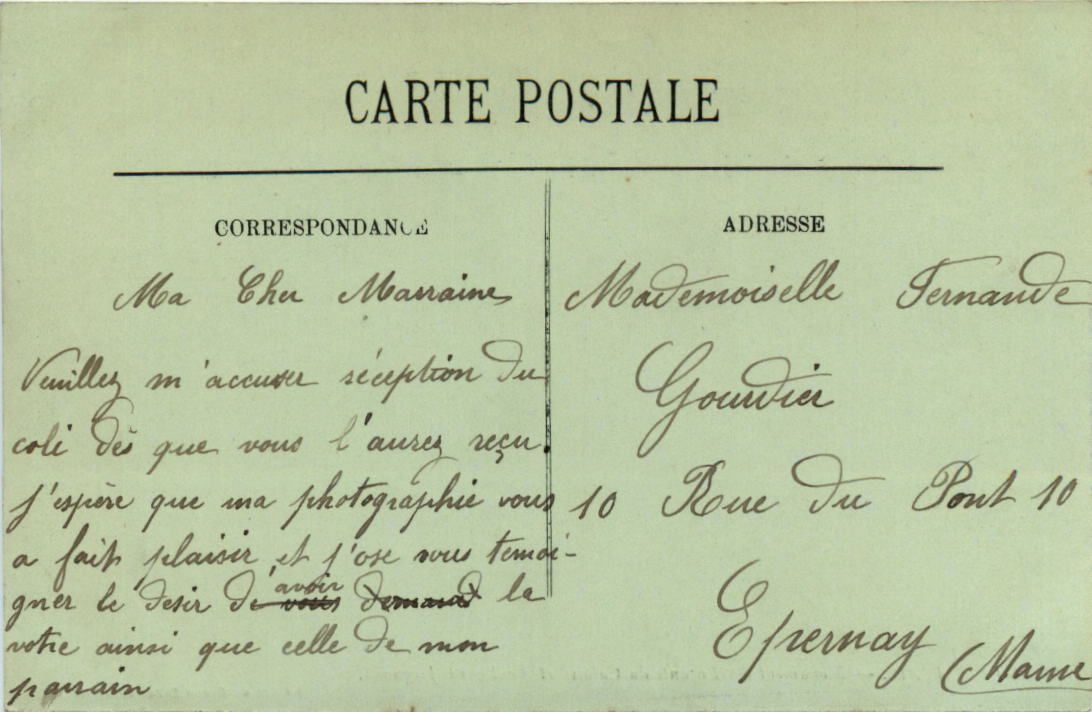 CARTE POSTALE
CORRESPONDANCE
Ma Cher Marraine
Veuillez m'accuser réception du
coli dès que vous l'aurez reçu.
j'espère que ma photographie vous
a fait plaisir et j'ose vous temoi-
gner le desir d'avoir la
votre ainsi que celle de mon
parrain
ADRESSE
Mademoiselle Fernande
Gourdier
10 Rue du Pont 10
Epernay
(Marne